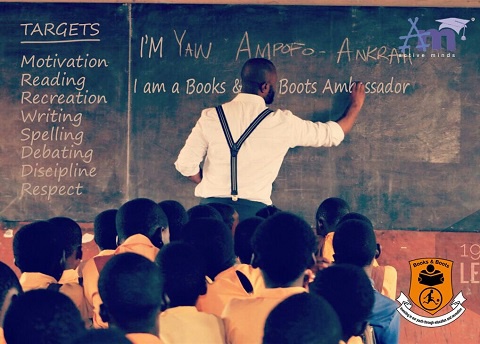 TARGETS
Motivation
Reading
Recreation
Writing
Spelling
Debating
Discipline
Respect
I'M YAW AMPOFO - ANKRA
I am a Books & Boots Ambassador
An
active minds
19
LE
Books & Boots